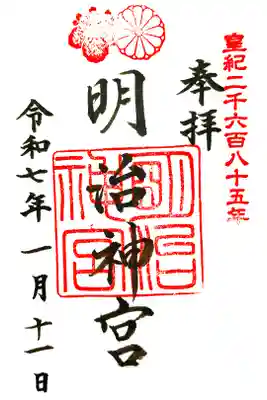 皇紀二千六百八十五年
奉拝
明治神宮
明治神宮
令和七年一月十一日